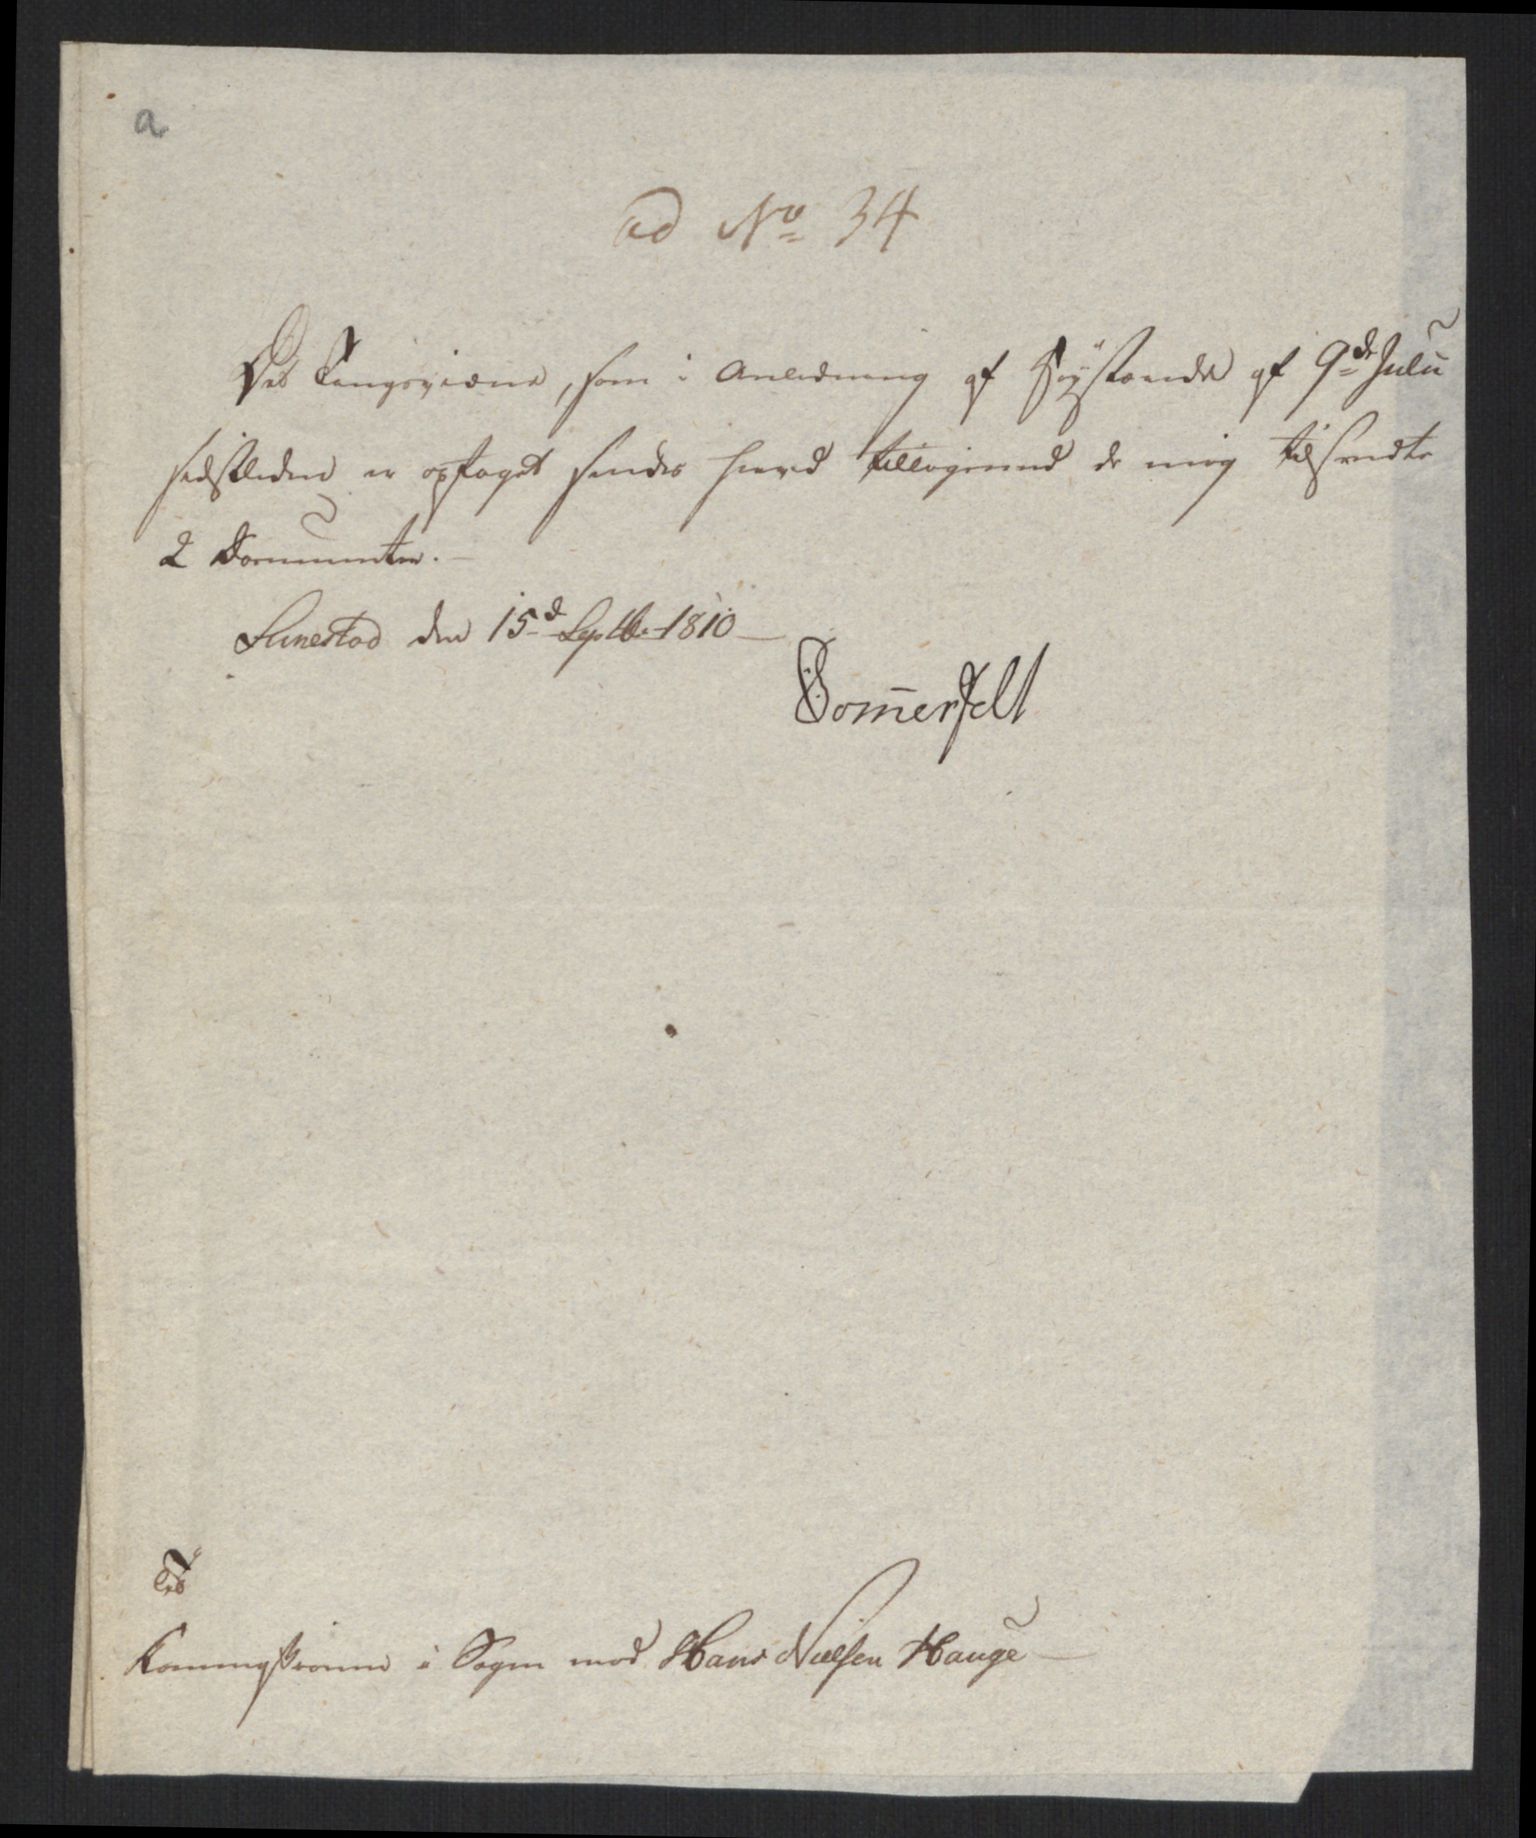 a
ad No 34
Det Tingsvidne, som i Anledning af Høystærede af 9de Julii
sidstleden er optaget sendes hierved tilligemed de mig tilsendte
2 Documenter.
den 15d Septbr 1810
Sommerfelt
Til
Kommissionen i Sagen mod Hans Nielsen Hauge